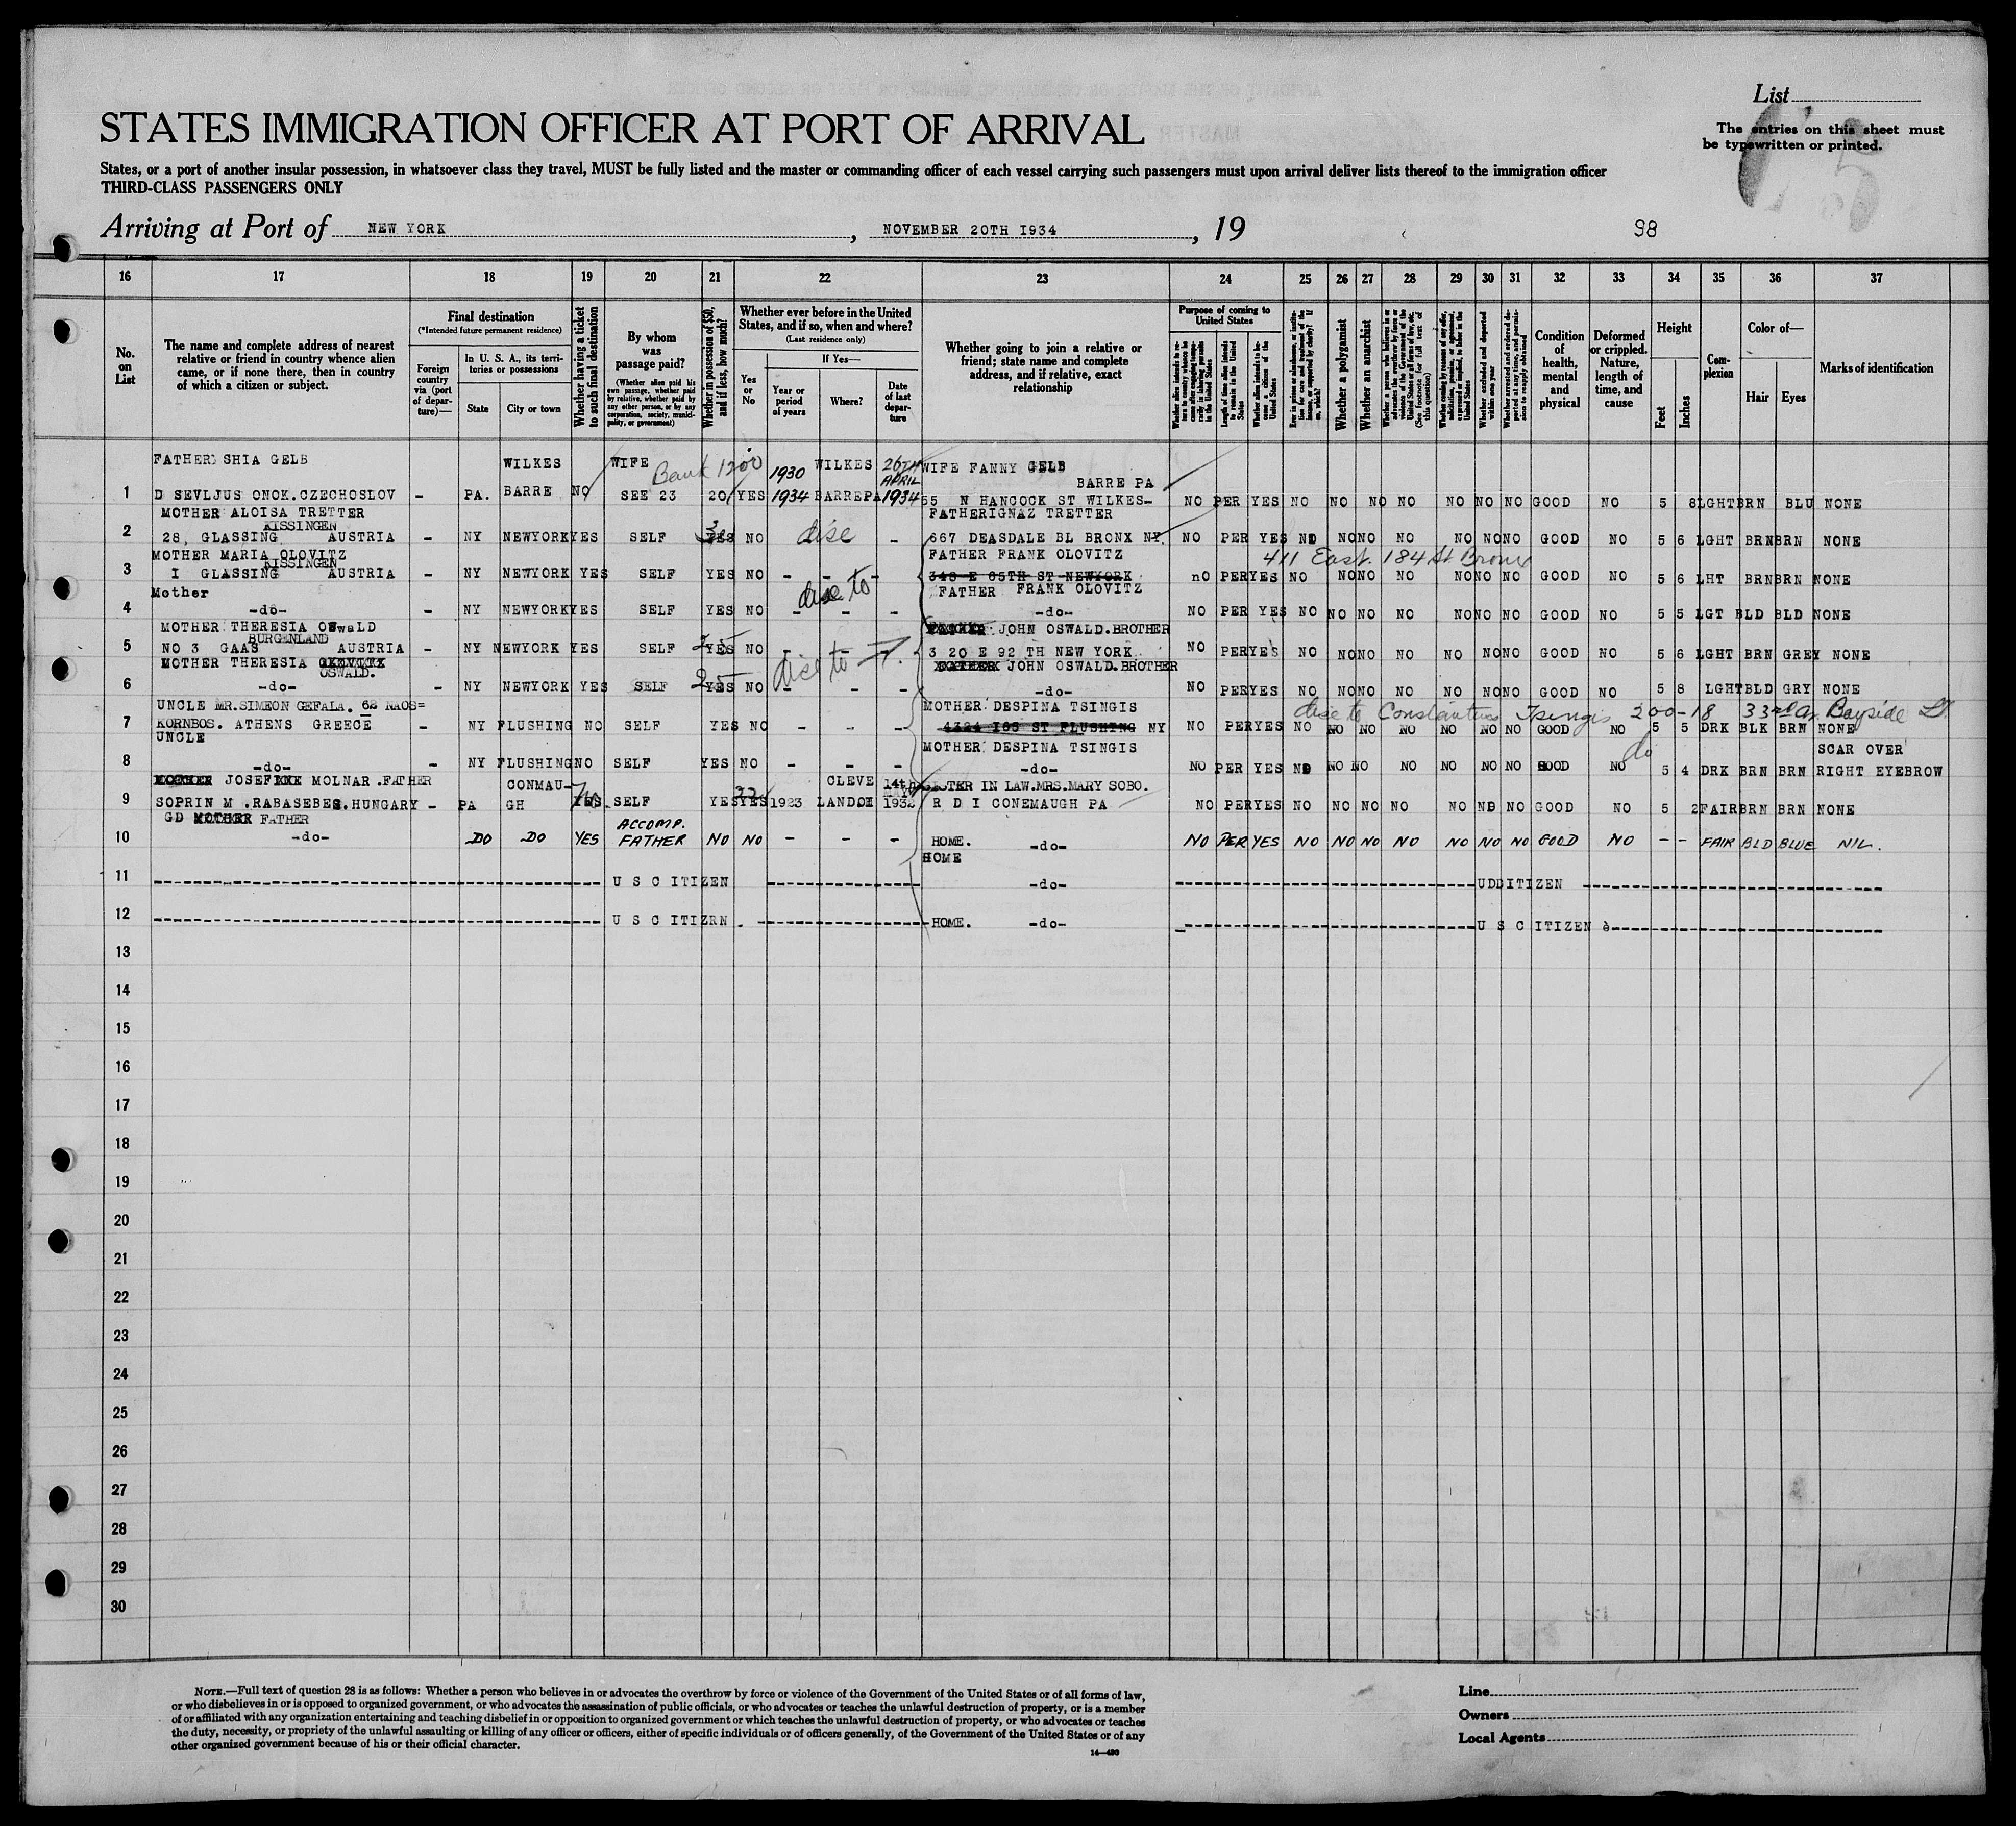 List
STATES IMMIGRATION OFFICER AT PORT OF ARRIVAL
The entries on this sheet must
be typewritten or printed.
States, or a port of another insular possession, in whatsoever class they travel, MUST be fully listed and the master or commanding officer of each vessel carrying such passengers must upon arrival deliver lists thereof to the immigration officer
THIRD-CLASS PASSENGERS ONLY
Arriving at Port of NEW YORK, NOVEMBER 20TH 1934, 19 98
16 17 18 19 20 21 22 23 24 25 26 27 28 29 30 31 32 33 34 35 36 37
No. on List
The name and complete address of nearest relative or friend in country whence alien came, or if none there, then in country of which a citizen or subject.
Final destination
(*Intended future permanent residence)
Foreign country via (port of departure)—
In U. S. A., its territories or possessions
State
City or town
Whether having a ticket to such final destination
By whom was passage paid?
(Whether alien paid his own passage, whether paid by relative, whether paid by any other person, or by any corporation, society, municipality, or government)
Whether in possession of $50, and if less, how much?
Whether ever before in the United States, and if so, when and where?
(Last residence only)
Yes or No
If Yes—
Year or period of years
Where?
Date of last departure
Whether going to join a relative or friend; state name and complete address, and if relative, exact relationship
Purpose of coming to United States
Length of time alien intends to remain in the United States
Whether alien intends to become a citizen of the United States
Whether a polygamist
Whether an anarchist
Whether excluded and deported within one year
Condition of health, mental and physical
Deformed or crippled. Nature, length of time, and cause
Height
Feet
Inches
Complexion
Color of—
Hair
Eyes
Marks of identification
FATHER SHIA GELB WILKES WIFE Bank 1200 1930 WILKES 26TH APRIL WIFE FANNY GELB
BARRE PA
1 D SEVLJUS ONOK.CZECHOSLOV - PA. BARRE NO SEE 23 20 YES 1934 BARRE PA 1934 55 N HANCOCK ST WILKES- NO PER YES NO NO NO NO NO NO NO GOOD NO 5 8 LGHT BRN BLU NONE
MOTHER ALOISA TRETTER FATHER IGNAZ TRETTER
KISSINGEN
2 28, GLASSING AUSTRIA - NY NEWYORK YES SELF YES NO disc - 667 DEASDALE BL BRONX NY. NO PER YES NO NO NO NO NO NO NO GOOD NO 5 6 LGHT BRN BRN NONE
MOTHER MARIA OLOVITZ FATHER FRANK OLOVITZ 411 East. 184 St Bronx
KISSINGEN
3 I GLASSING AUSTRIA - NY NEWYORK YES SELF YES NO - - - 348 E 65TH ST NEWYORK nO PER YES NO NO NO NO NO NO NO GOOD NO 5 6 LHT BRN BRN NONE
Mother disc to FATHER FRANK OLOVITZ
4 -do- - NY NEWYORK YES SELF YES NO - - - -do- NO PER YES NO NO NO NO NO NO NO GOOD NO 5 5 LGT BLD BLD NONE
MOTHER THERESIA OSwaLD JOHN OSWALD.BROTHER
BURGENLAND
5 NO 3 GAAS AUSTRIA - NY NEWYORK YES SELF 25 YES NO - - - 3 20 E 92 TH NEW YORK NO PER YES NO NO NO NO NO NO NO GOOD NO 5 6 LGHT BRN GREY NONE
MOTHER THERESIA OSWALD. disc to F. JOHN OSWALD.BROTHER
6 -do- - NY NEWYORK YES SELF 25 YES NO - - - -do- NO PER YES NO NO NO NO NO NO NO GOOD NO 5 8 LGHT BLD GRY NONE
UNCLE MR.SIMEON GEFALA. 68 NAOS= MOTHER DESPINA TSINGIS disc to Constantinos Tsingis 200-18 33rd Av. Bayside L.I.
7 KORNBOS. ATHENS GREECE - NY FLUSHING NO SELF YES NO - - - 4324 I65 ST FLUSHING NY NO PER YES NO NO NO NO NO NO NO GOOD NO 5 5 DRK BLK BRN NONE
UNCLE MOTHER DESPINA TSINGIS do SCAR OVER
8 -do- - NY FLUSHING NO SELF YES NO - - - -do- NO PER YES NO NO NO NO NO NO NO GOOD NO 5 4 DRK BRN BRN RIGHT EYEBROW
MOTHER JOSEF MOLNAR .FATHER CONMAU- CLEVE 14th MAY SISTER IN LAW.MRS.MARY SOBO.
9 SOPRIN M .RABASEBES.HUNGARY - PA GH No YES SELF YES YES 1923 LAND OH 1932 R D I CONEMAUGH PA NO PER YES NO NO NO NO NO NO NO GOOD NO 5 2 FAIR BRN BRN NONE
GD MOTHER FATHER
10 -do- DO DO YES ACCOMP. FATHER NO NO - - - HOME. -do- NO PER YES NO NO NO NO NO NO NO GOOD NO - - FAIR BLD BLUE NIL.
HOME
11 U S C ITIZEN -do- UDDITIZEN
12 U S C ITIZRN HOME. -do- U S C ITIZEN
13
14
15
16
17
18
19
20
21
22
23
24
25
26
27
28
29
30
NOTE.—Full text of question 28 is as follows: Whether a person who believes in or advocates the overthrow by force or violence of the Government of the United States or of all forms of law,
or who disbelieves in or is opposed to organized government, or who advocates the assassination of public officials, or who advocates or teaches the unlawful destruction of property, or is a member
of or affiliated with any organization entertaining and teaching disbelief in or opposition to organized government or which teaches the unlawful destruction of property, or who advocates or teaches
the duty, necessity, or propriety of the unlawful assaulting or killing of any officer or officers, either of specific individuals or of officers generally, of the Government of the United States or of any
other organized government because of his or their official character.
14—490
Line
Owners
Local Agents